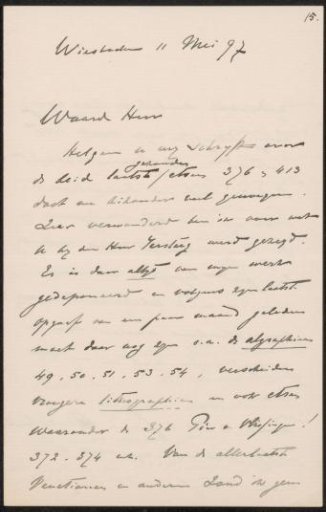 15.
Wiesbaden 11 Mei 97
Waard Heer
Hetgeen u mij schrijft over
gezonden
de beide laatste etsen 376 & 413
doet me bijzonder veel genoegen.
Zeer verwonderd ben ik over wat
u bij den Heer Tersteeg werd gezegd.
Er is daar altijd van mijn werk
gedeponeerd en volgens zijn laatste
opgaaf van een paar maand geleden
moet daar nog zijn o.a. de algraphieën
49. 50. 51. 53. 54, verscheiden
vroegere lithographieën en ook etsen
waaronder de 376 Vlissingen!
372. 374 enz. Van de allerlaatste
Venetianen en anderen zond ik geen